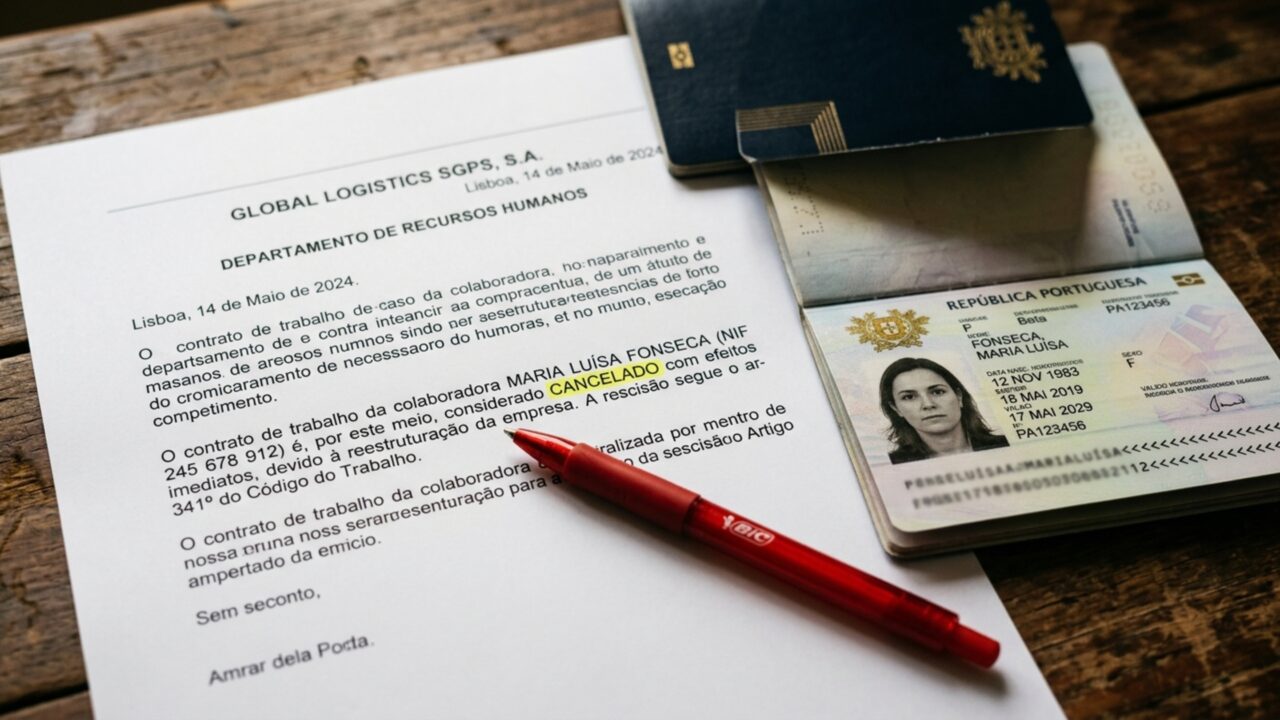 GLOBAL LOGISTICS SGPS, S.A.
Lisboa, 14 de Maio de 2024
DEPARTAMENTO DE RECURSOS HUMANOS
Lisboa, 14 de Maio de 2024.
O contrato de trabalho de caso da colaboradora, ho naparaimento e
departsamento de e contra inteancir aa compracentua, de um átuito de
masanos. de areosos numnos sindo ner
do cromicaramento de necesssaoro do humoras, et no munto, eseçação
competimento.
O contrato de trabalho da colaboradora MARIA LUÍSA FONSECA (NIF
245 678 912) é, por este meio, considerado CANCELADO com efeitos
imediatos, devido à reestruturação da empresa. A rescisão segue o ar-
341º do Código do Trabalho.
O contrato de trabalho da colaboradora ralizada por mentro de
nossa noss para a da Artigo
ampertado da emicio.
Sem seconto,
Amrar dela Porta.
REPÚBLICA PORTUGUESA
P Beta PA123456
FONSECA,
MARIA LUÍSA
12 NOV 1983
F
18 MAI 2019
17 MAI 2029
PA123456
BIC